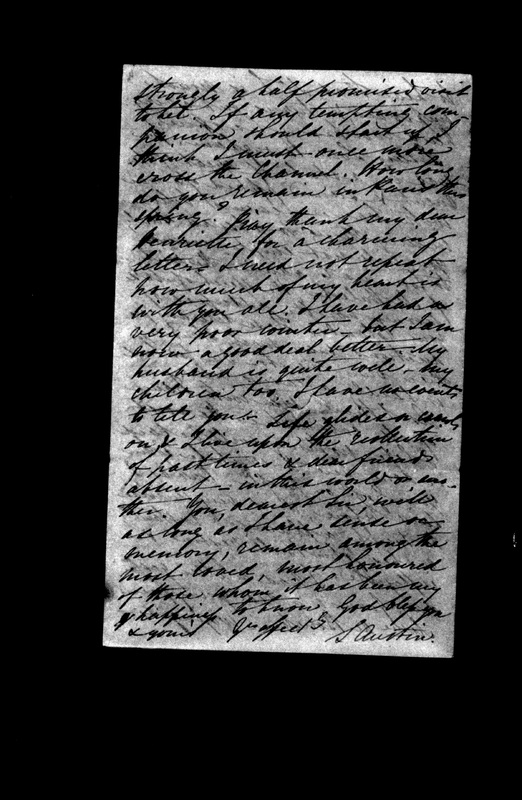 strongly a half promised visit
to let. If any tempting com-
panion should start up I
think I must once more
cross the Channel. How long
do you remain in Paris this
spring? Pray thank my dear
Henriette for a charming
letter. I need not repeat
how much of my heart is
with you all. I have had a
very poor winter - but I am
now a good deal better. My
husband is quite well - my
children too. I have no events
to tell you. Life glides
on & I live upon the recollection
of past times & dear friends
absent - in this world or ano-
ther. You, dearest Sir, will
as long as I have sense or
memory, remain among the
most loved, most honoured
of those whom it has been my
happiness to know. God bless you
& yours Yr affect
S Austin.